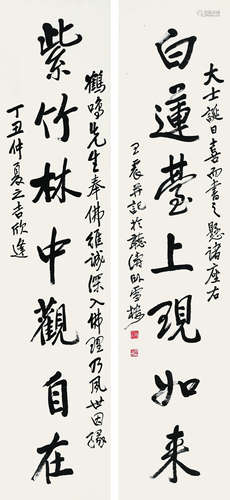 大士誕日喜而書之懸諸座右
白蓮臺上現如來
王震并記於聽濤卧雪樓
鶴鳴先生奉佛維誠深入佛理乃夙世因緣
紫竹林中觀自在
丁丑仲夏之吉欣逢